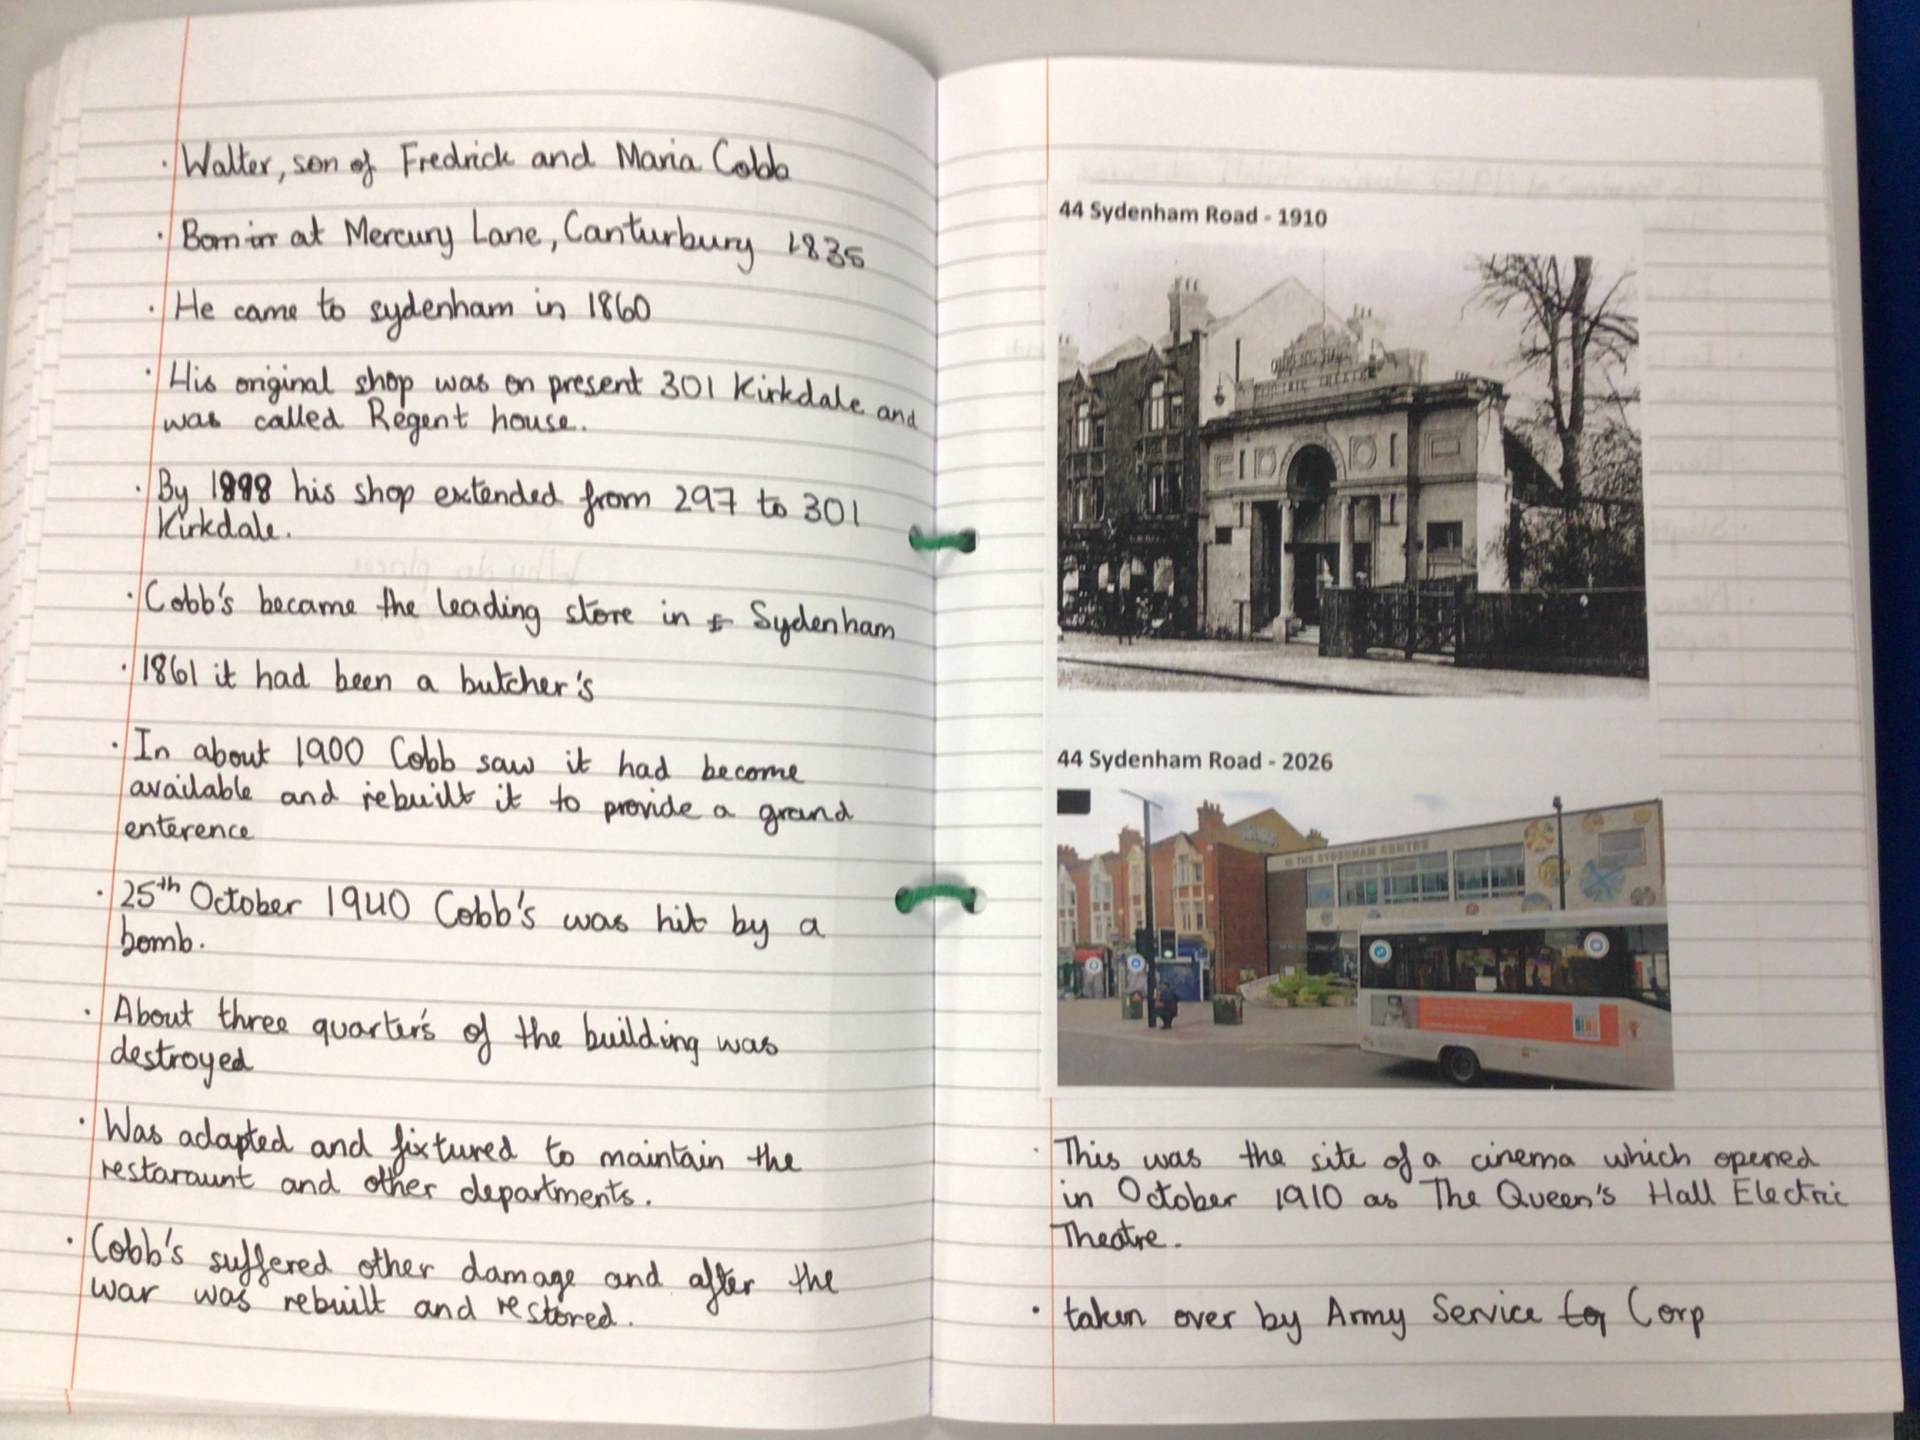 · Walter, son of Fredrick and Maria Cobb
· Born in at Mercury Lane, Canturbury 1835
· He came to sydenham in 1860
· His original shop was on present 301 Kirkdale and
was called Regent house.
· By 1898 his shop extended from 297 to 301
Kirkdale.
· Cobb's became the leading store in Sydenham
· 1861 it had been a butcher's
· In about 1900 Cobb saw it had become
available and rebuilt it to provide a grand
enterence
· 25th October 1940 Cobb's was hit by a
bomb.
· About three quarter's of the building was
destroyed
· Was adapted and fixtured to maintain the
restaraunt and other departments.
· Cobb's suffered other damage and after the
war was rebuilt and restored.
44 Sydenham Road - 1910
QUEEN'S HALL
ELECTRIC THEATRE
44 Sydenham Road - 2026
THE SYDENHAM CENTRE
· This was the site of a cinema which opened
in October 1910 as The Queen's Hall Electric
Theatre.
· taken over by Army Service Corp